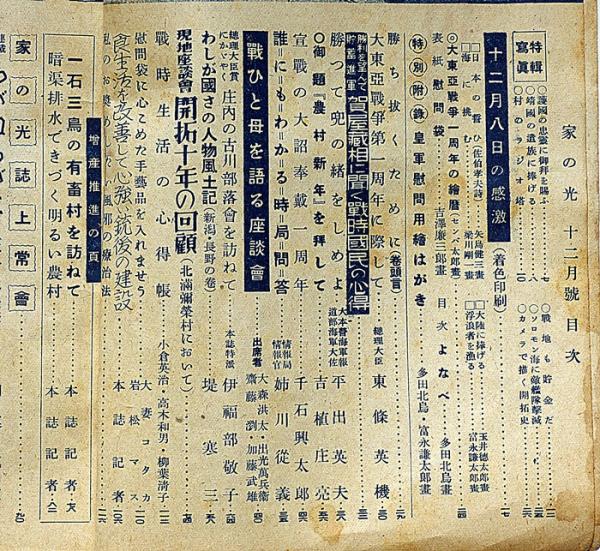 家の光 十二月號 目次
特輯寫眞
◇護國の忠靈に御拜を賜ふ
◇靖國の遺族に捧げる
◇村のラジオ塔
◇戰地も貯金だ
◇ソロモン海に敵艦隊擊滅
◇カメラで描く開拓史
十二月八日の感激（着色印刷）
□日本の誓ひ（佐伯孝夫詩）矢島健三畫
□海に挑む 梁川剛一畫
□大陸に捧げる 玉井德太郎畫
□浮浪者を漁る 富永謙太郎畫
◎大東亞戰爭一周年の繪曆（センバ太郎畫）
表紙 慰問袋 吉澤廉三郎畫
目次 よなべ 多田北烏畫
特別附錄 皇軍慰問用繪はがき 多田北烏・富永謙太郎畫
勝ち拔くために（卷頭言）
大東亞戰爭第一周年に際して 總理大臣 東條英機
勝利を望んで貯蓄進軍 賀屋藏相に聞く戰時國民の心得
勝つて兜の緒をしめよ 大本營海軍報道部海軍大佐 平出英夫
◇御題『農村新年』を拜して 吉植庄亮
宣戰の大詔奉戴一周年 千石興太郎
誰にもわかる時局問答 情報局情報官 姉川從義
戰ひと母を語る座談會 出席者 大森洪太・出光萬兵衞 齋藤瀏・加藤武雄
總理大臣賞にかゞやく 庄内の古川部落會を訪ねて 本誌特派 伊福部敬子
わしが國さの人物風土記 新潟・長野の卷 堤寒三
現地座談會 開拓十年の回顧（北滿彌榮村において）
戰時生活の心得帳 小倉英治 高木和男 柳葉清子
慰問袋に心こめた手藝品を入れませう 大妻コタカ
食生活を改善して心強い銃後の建設 岩松マス
私のお奬めしたい風邪の療治法 本誌記者
增產推進の頁
一石三鳥の有畜村を訪ねて 本誌記者
暗渠排水できづく明るい農村 本誌記者
家の光誌上常會